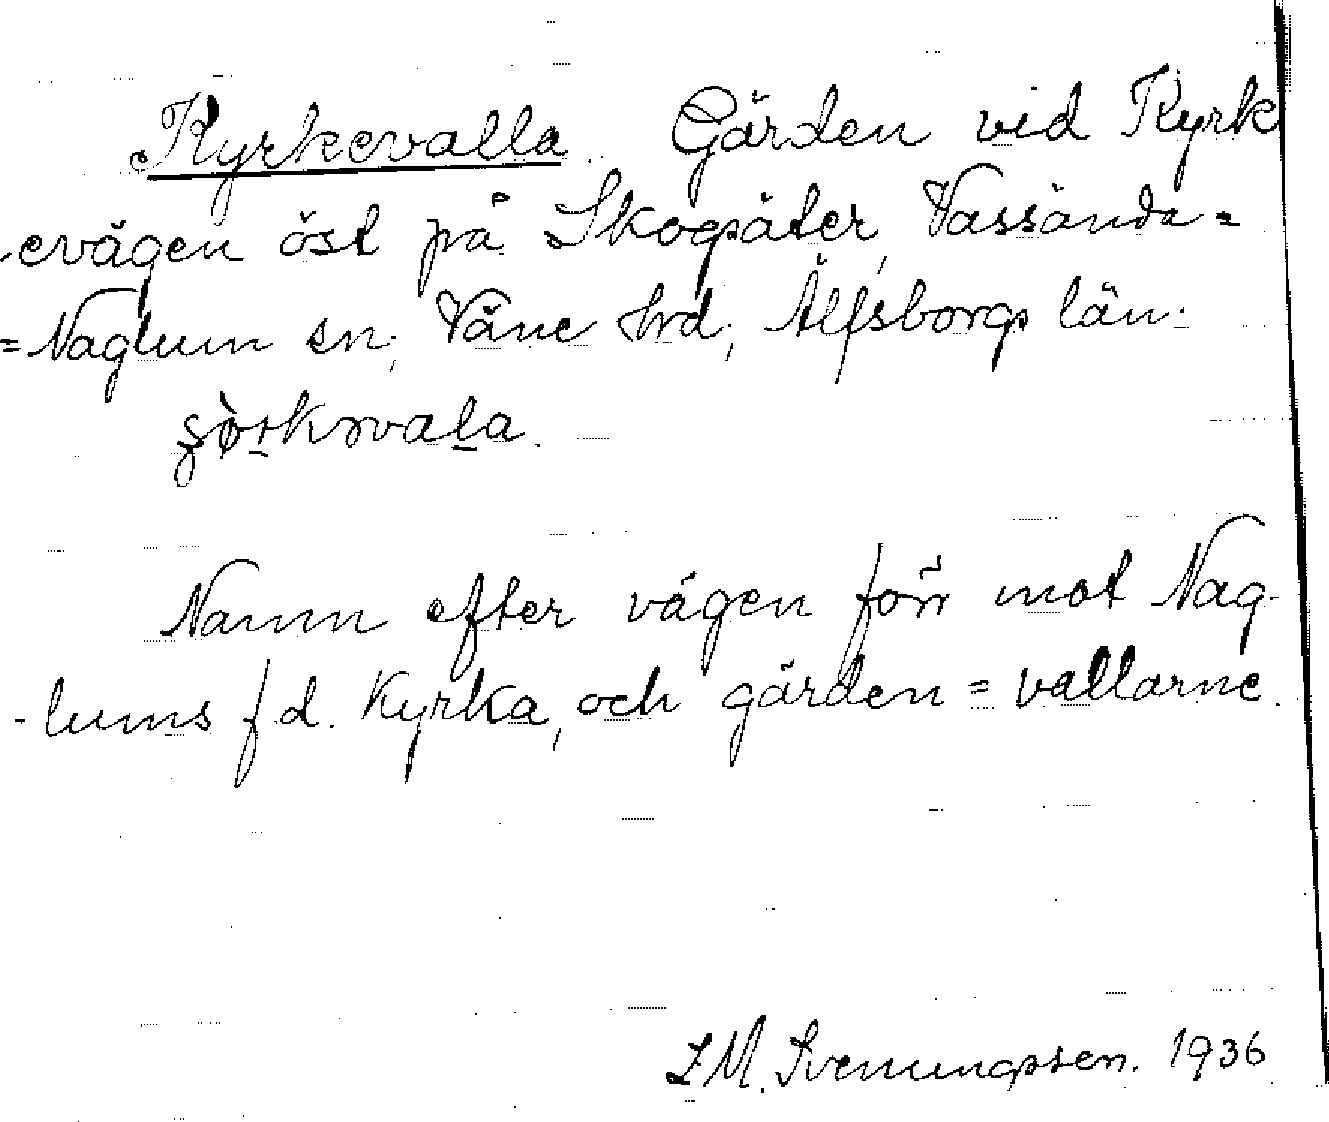 Kyrkevalla Gärden vid Kyrk
-evägen öst på Skogsäter, Vassända=
=Naglum sn, Väne hrd, Älfsborgs län.
Namn efter vägen förr mot Nag-
-lums f d. Kyrka, och gärden = vallarne.
L M. Svenungsson. 1936